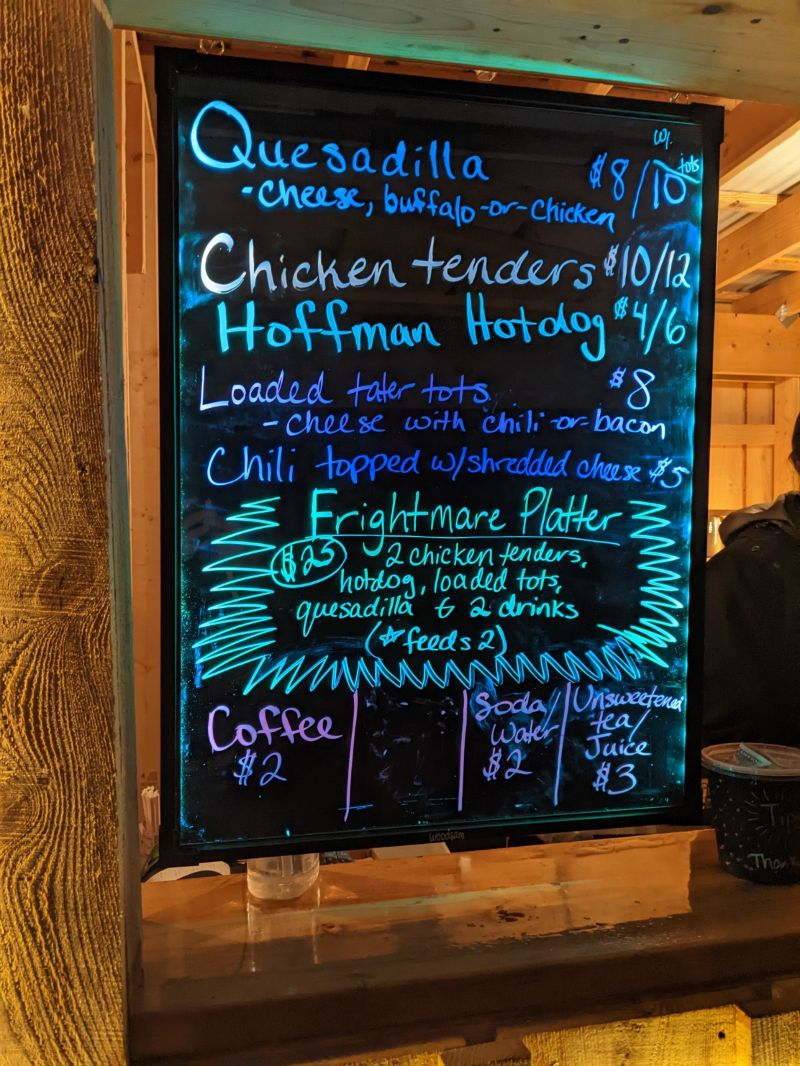 Quesadilla $8/10 w/ tots
-cheese, buffalo-or-chicken
Chicken tenders $10/12
Hoffman Hotdog $4/6
Loaded tater tots $8
- cheese with chili-or-bacon
Chili topped w/shredded cheese $5
Frightmare Platter
$25 2 chicken tenders,
hotdog, loaded tots,
quesadilla & 2 drinks
(☆ feeds 2)
Coffee
$2
Soda/
Water
$2
Unsweetened
tea/
Juice
$3
woodsam
Tip
Thank